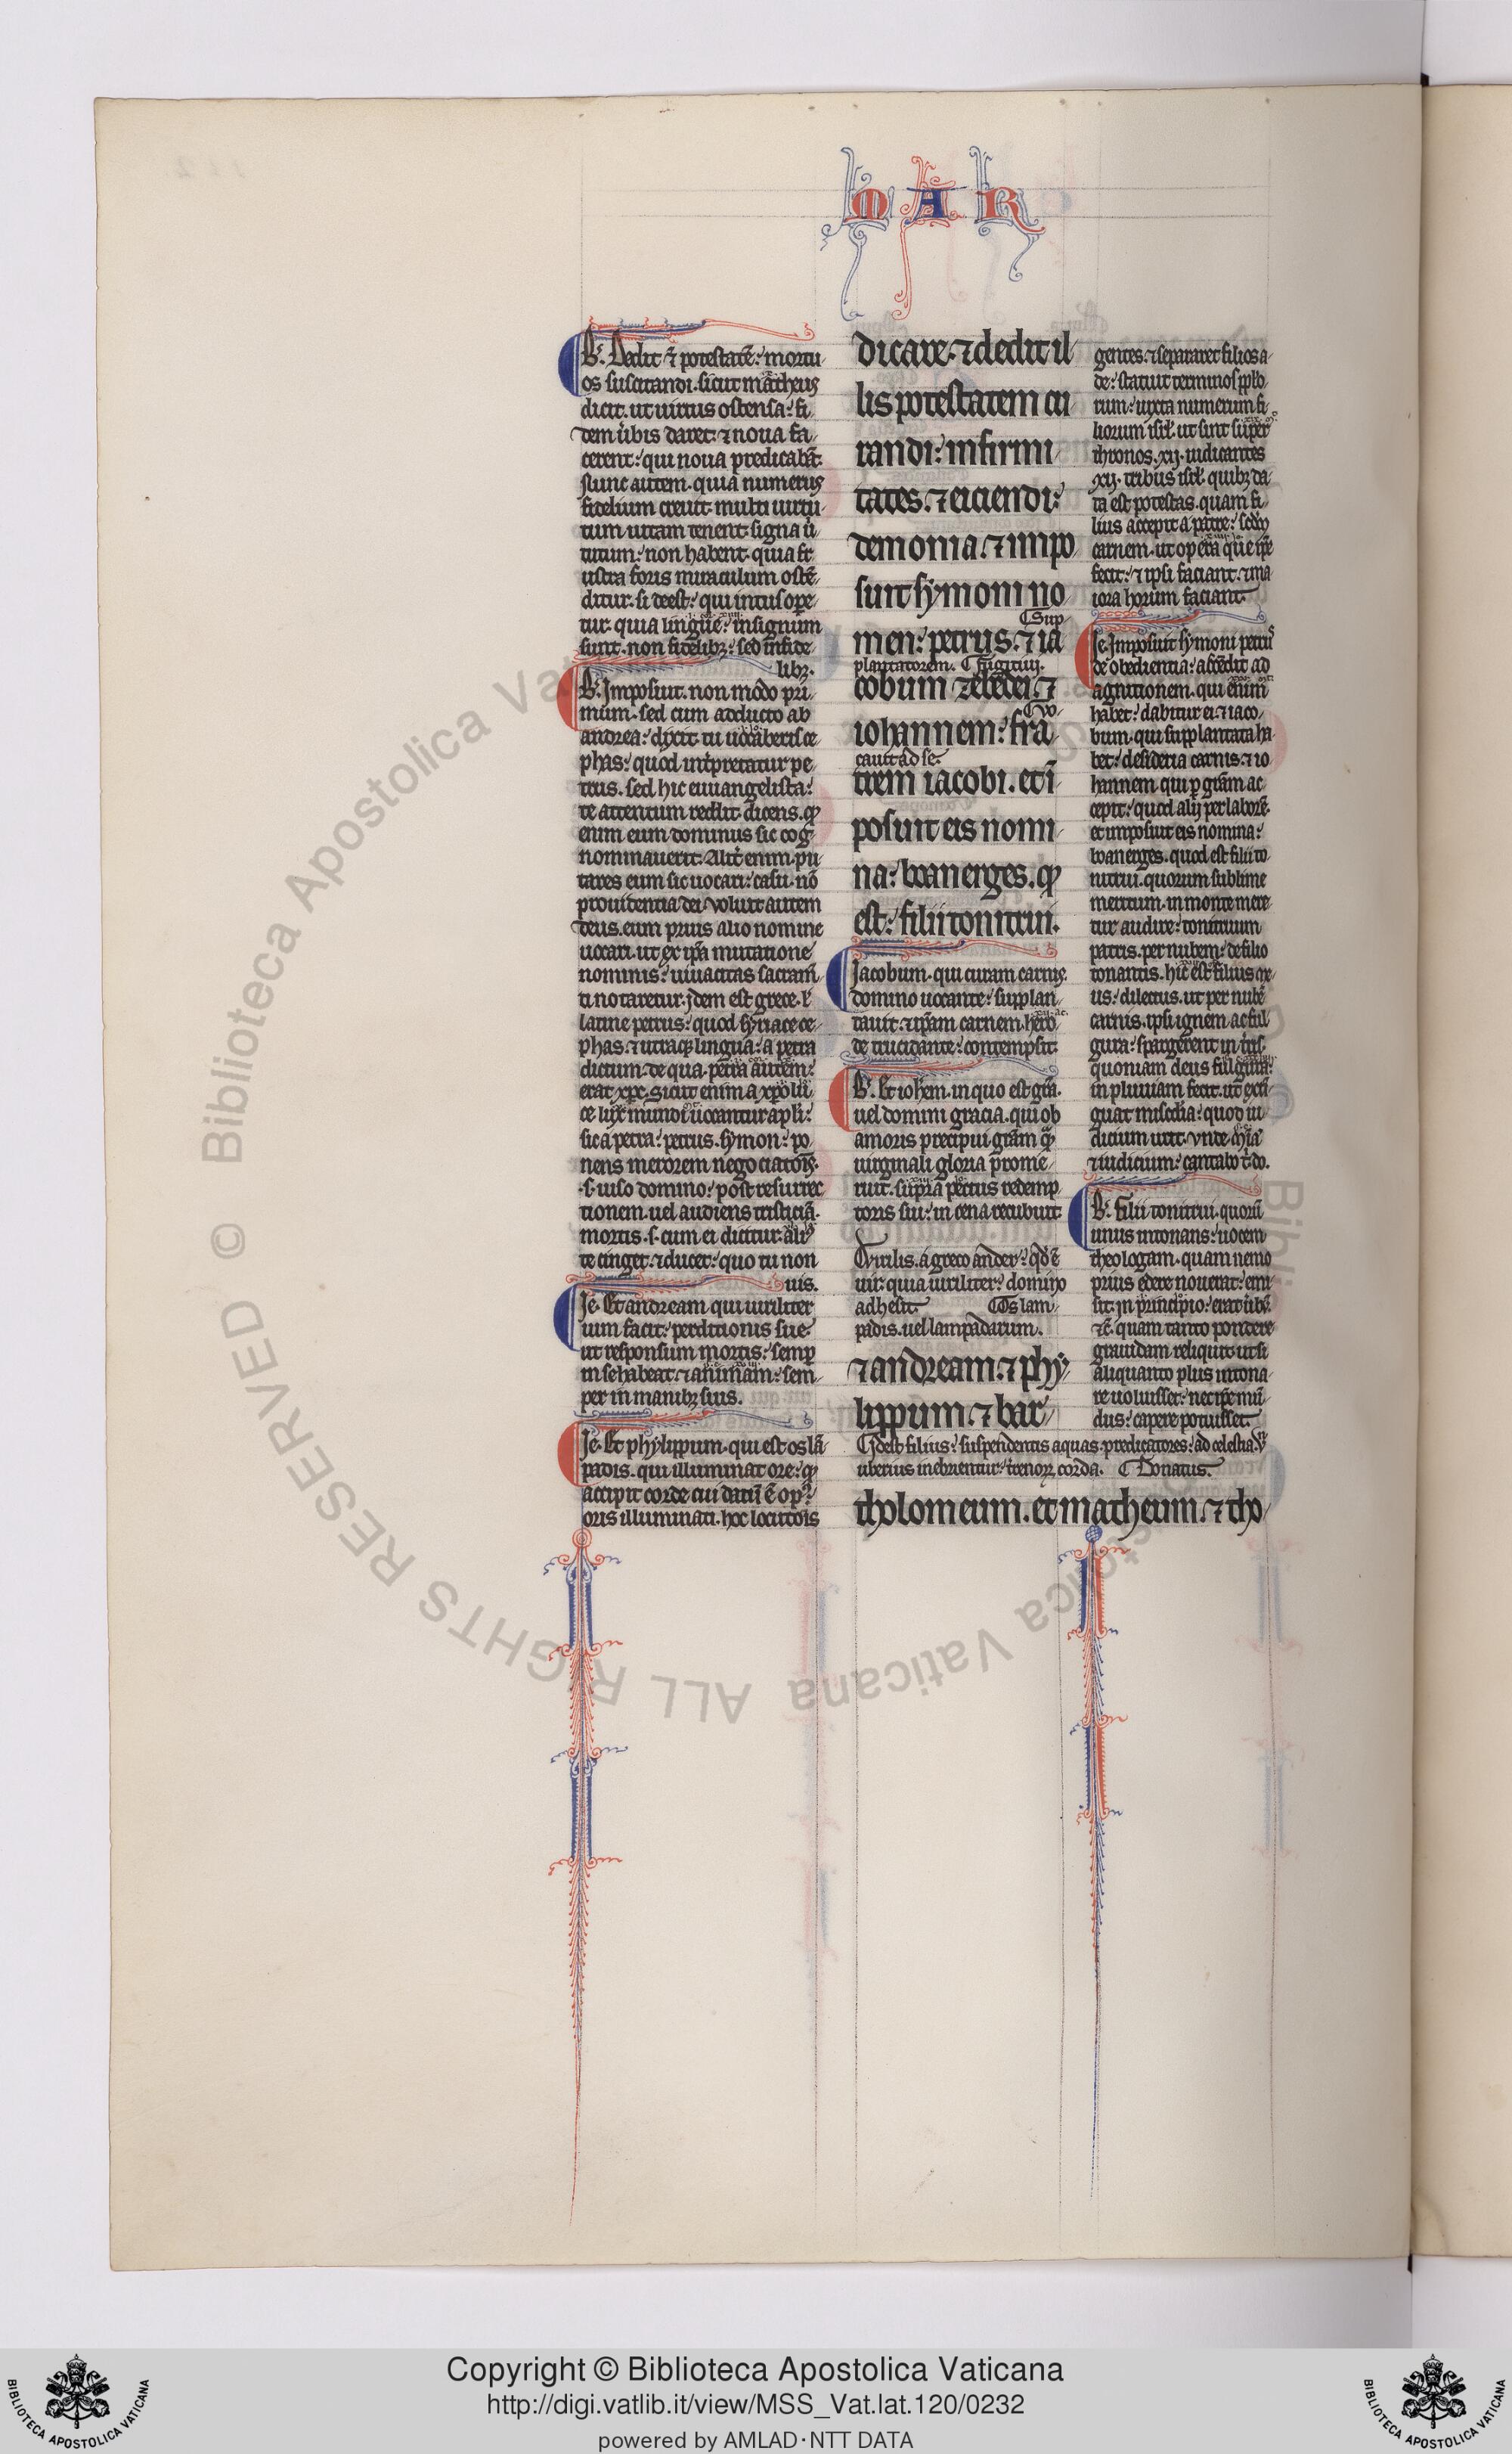 MAR
B. Dedit & potestatē: mortu
os suscitandi. sicut matheus
dicit. ut uirtus ostensa: fi
dem uerbis daret: & noua fa
cerent: qui noua predicabāt.
Nunc autem. quia numerus
fidelium creuit. multi uirtu
tum uitam tenent. signa uir
tutum: non habent. quia fr
ustra foris miraculum ostē
ditur. si deest: qui intus ope
tur. quia lingue: in signum
sunt. non fidelibꝫ: sed infide
libꝫ.
B. Imposuit. non modo pri
mum. sed cum adducto ab
andrea: dixit. tu uocaberis ce
phas: quod interpretatur pe
trus. sed hic euuangelista:
te attentum reddit. dicens. qđ
enim eum dominus sic cog
nominauerit. Alit enim pu
tares eum sic uocari: casu. nō
prouidentia dei. voluit autem
deus. eum prius alio nomine
uocari. ut ex ipa mutatione
nominis: uiuacitas sacram̄
ti notaretur. jdem est grece. ł
latine petrus: quod syriace ce
phas. & utraqꝫ lingua: a petra
dictum. de qua petra autem:
erat xp̄c. Sicut enim a xp̄o lu
ce lux mundi uocantur apli:
sic a petra: petrus. symon: po
nens merorem negociatōis.
.s. uiso domino: post resurrec
tionem. uel audiens tristiciā.
mortis .s. cum ei dicitur. alius
te cinget. & ducet: quo tu non
uis.
Je. Et andream qui uiriliter
uim facit: perditionis sue.
ut responsum mortis: semp
in se habeat. & animam: sem
per in manibꝫ suis.
Je. Et phylippum. qui est os lā
padis. qui illuminat ore: qđ
accipit corde cui datū ē op
oris illuminati. hoc locutōis
dicare. & dedit il
lis potestatem cu
randi: infirmi
tates. & eiciendi:
demonia. & impo
suit symoni no
Sup
men: petrus. & ia
plantatorem. fugitiui.
cobum zebedei. &
Vo
iohannem: fra
cauit ad se.
trem iacobi. et ī
posuit eis nomi
na: boanerges. qđ
est: filii tonitrui.
Jacobum. qui curam carnis.
domino uocante: supplan
tauit. & ipam carnem. hero
de trucidante: contempsit.
B. Et iohem. in quo est grā.
uel domini gracia. qui ob
amoris precipui grām quā
uirginali gloria prome
ruit. supra pectus redemp
toris sui: in cena recubuit.
Uirilis. a greco ander: qđ ē
uir. quia uiriliter: domino
adhesit. Os lam
padis. uel lampadarum.
& andream. & phy
lippum. & bar
Idest filius: suspendentis aquas. predicatores: ad celestia. ut
uberius inebrientur: terrenoꝝ corda. Donatus.
tholomeum. et matheum. & tho
gentes. & separaret filios a
de: statuit terminos pplo
rum: iuxta numerum fi
liorum isrł. ut sint super
thronos .xij. iudicantes
xij. tribus isrł. quibꝫ da
ta est potestas. quam fi
lius accepit a patre: scdm
carnem. ut opera que ipe
fecit: & ipsi faciant. & ma
iora horum faciant.
Je. Imposuit symoni petrus
de obedientia: ascedit ad
agnitionem. qui enim
habet: dabitur ei. & iaco
bum. qui supplantata ha
bet: desideria carnis. & io
hannem. qui p grām ac
cepit: quod alij per laborē.
et imposuit eis nomina:
boanerges. quod est filii to
nitrui. quorum sublime
meritum. in monte mere
tur audire: tonitruum
patris. per nubem: de filio
tonantis. hic est filius me
us: dilectus. ut per nubē
carnis. ipsi ignem ac ful
gura: spargerent in tris.
quoniam deus fulgura:
in pluuiam fecit. ut exti
guat miscdia: quod iu
dicium urit. vnde. mīa
& iudicium: cantabo t. do.
B. Filii tonitrui. quorū
unus intonans: uocem
theologam. quam nemo
prius edere nouerat: emi
sit. jn principio: erat ubū.
&c̄. quam tanto pondere
grauidam reliquit. ut si
aliquanto plus intona
re uoluisset: nec ipe mū
dus: capere potuisset.
Copyright © Biblioteca Apostolica Vaticana
http://digi.vatlib.it/view/MSS_Vat.lat.120/0232
powered by AMLAD·NTT DATA
BIBLIOTECA APOSTOLICA VATICANA
BIBLIOTECA APOSTOLICA VATICANA
© Biblioteca Apostolica Vaticana ALL RIGHTS RESERVED